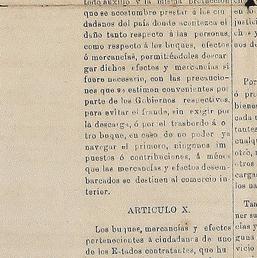 todo auxilio y la misma protección
que se acostumbre prestar á los ciu
dadanos del país donde acontezca el
daño tanto respecto á las personas,
como respecto á los buques, efectos
ó mercancías, permitiéndoles descar
gar dichos efectos y mercancías si
fuere necesario, con las precaucio-
nes que se estimen convenientes por
parte de los Gobiernos respectivos,
para evitar el fraude, sin exigir por
la descarga, ó por el trasbordo á o-
tro buque, en caso de no poder ya
navegar el primero, ningunos im
puestos ó contribuciones, á ménos
que las mercancías y efectos desem-
barcados se destinen al comercio in
terior.
ARTICULO X.
Los buques, mercancías y efectos
pertenecientes á ciudadanos de uno
de los Estados contratantes, que hu
justici
Por
cada
cualqu
cargar
los
Tam
ner su
cías y
vicio